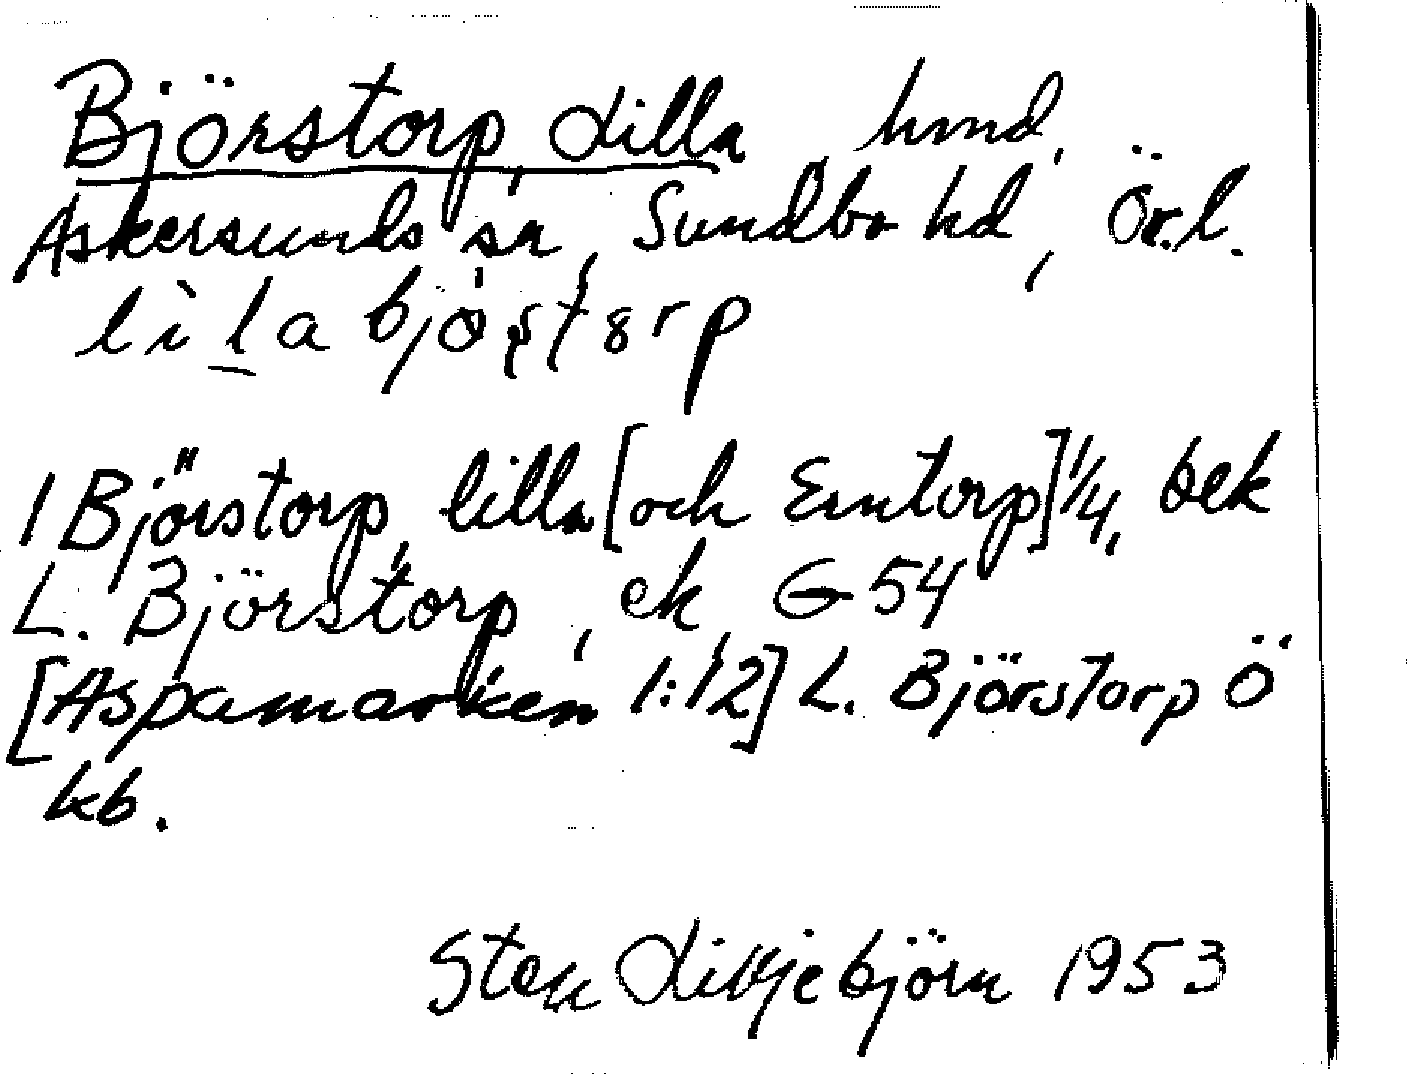 Björstorp, Lilla hmd,
Askersunds sn, Sundbo hd, Ör.l.
lìla
1 Björstorp, lilla [och Emtorp] 1/4, bek
L. Björstorp, ek, G 54
[Aspamarken 1:12] L. Björstorp Ö
kb.
Sten Liljebjörn 1953